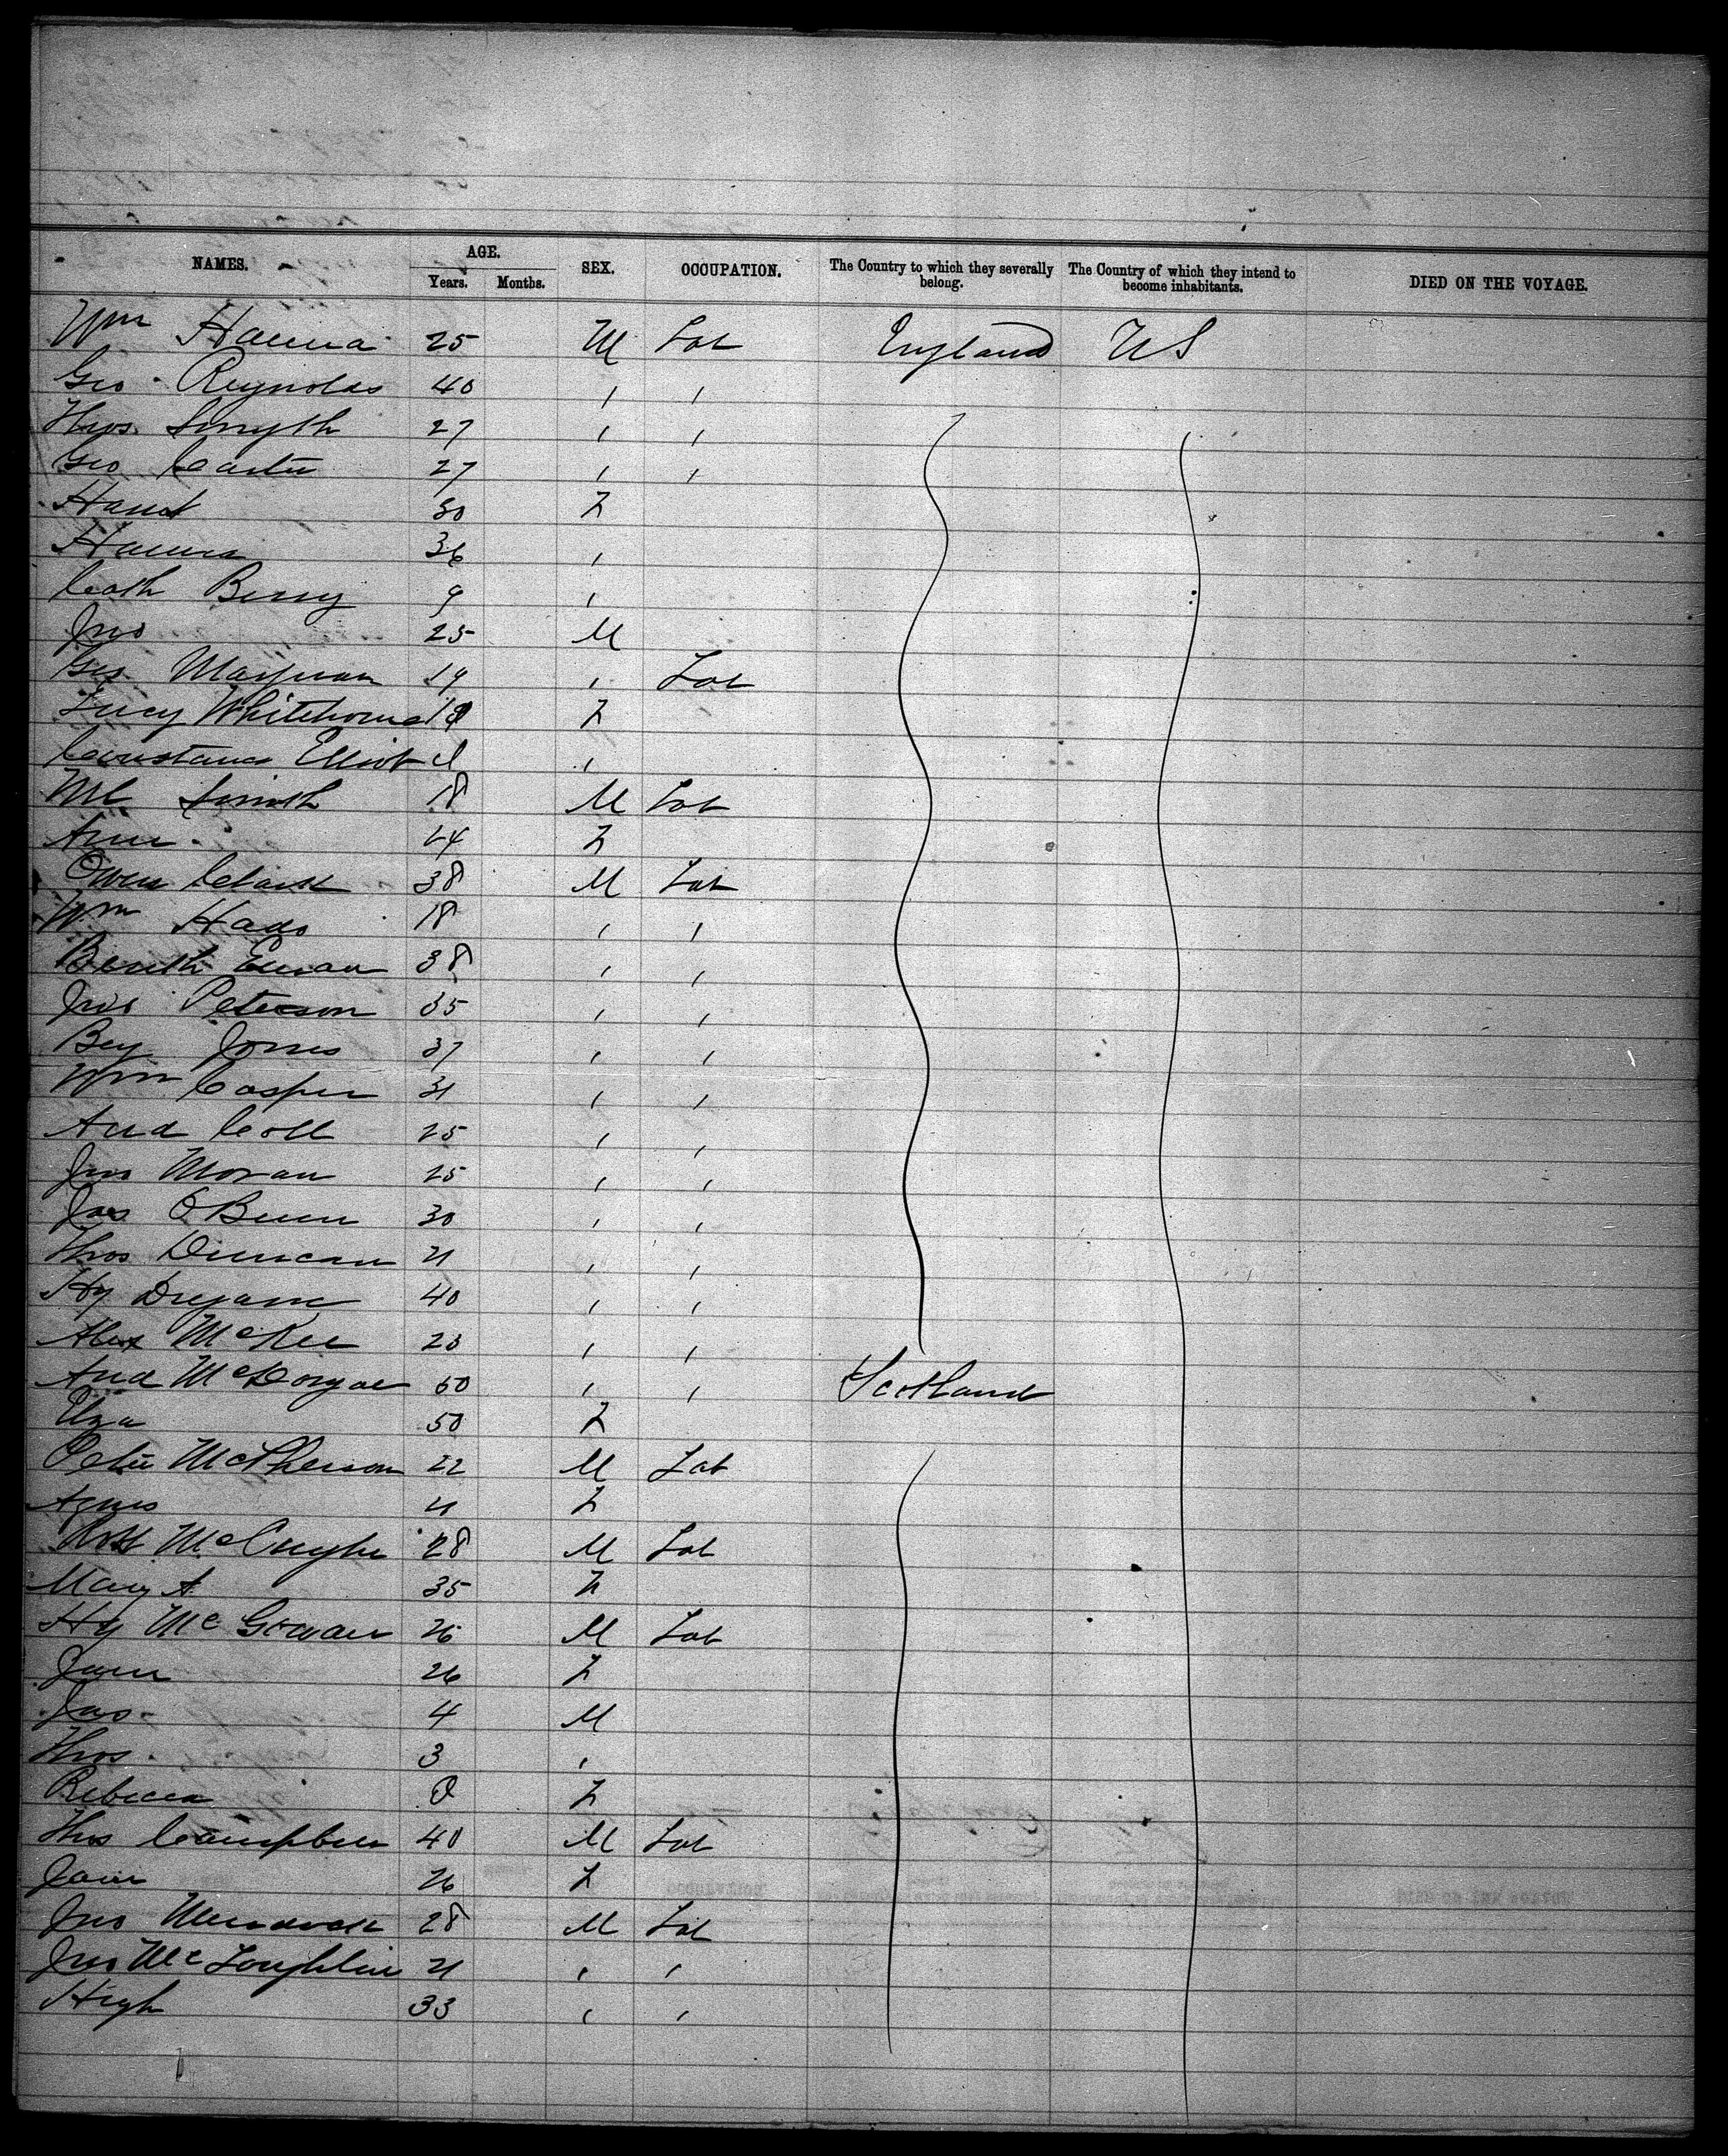 NAMES. AGE. SEX. OCCUPATION. The Country to which they severally belong. The Country of which they intend to become inhabitants. DIED ON THE VOYAGE.
Years. Months.
Wm Hanna 25 M Lab England US
Geo. Reynolds 40 " "
Thos. Smyth 27 " "
Geo Carter 27 " "
30 F
Hanna 36 "
Cath Berry 9 "
Jno 25 M
Geo 19 " Lab
Lucy Whitehorne F
Constance Elliot "
Ml Smith 18 M Lab
Ann F
Owen Clark 38 M Lab
Wm 18 " "
38 " "
Jno Peterson 35 " "
Benj Jones 37 " "
Wm Casper 31 " "
And Coll 25 " "
Jno Moran 25 " "
Jas O'Brien 30 " "
Thos Duncan 21 " "
Hy 40 " "
Alex McKee 20 " "
And McDougal 50 " " Scotland
Eliza 50 F
Peter McPherson 22 M Lab
Agnes 21 F
Robt 28 M Lab
Mary A 35 F
Hy McGowan 26 M Lab
Jane 26 F
Jas. 4 M
Thos. 3 "
Rebecca 0 F
Thos Campbell 40 M Lab
Jane 26 F
Jno Murdoch 28 M Lab
Jno McLoughlin 21 " "
Hugh 33 " "